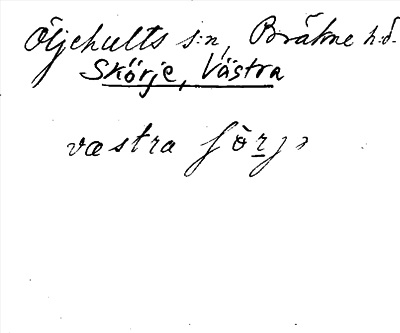 Öljehults s:n, Bräkne h:d.
Skörje, Västra
væstra